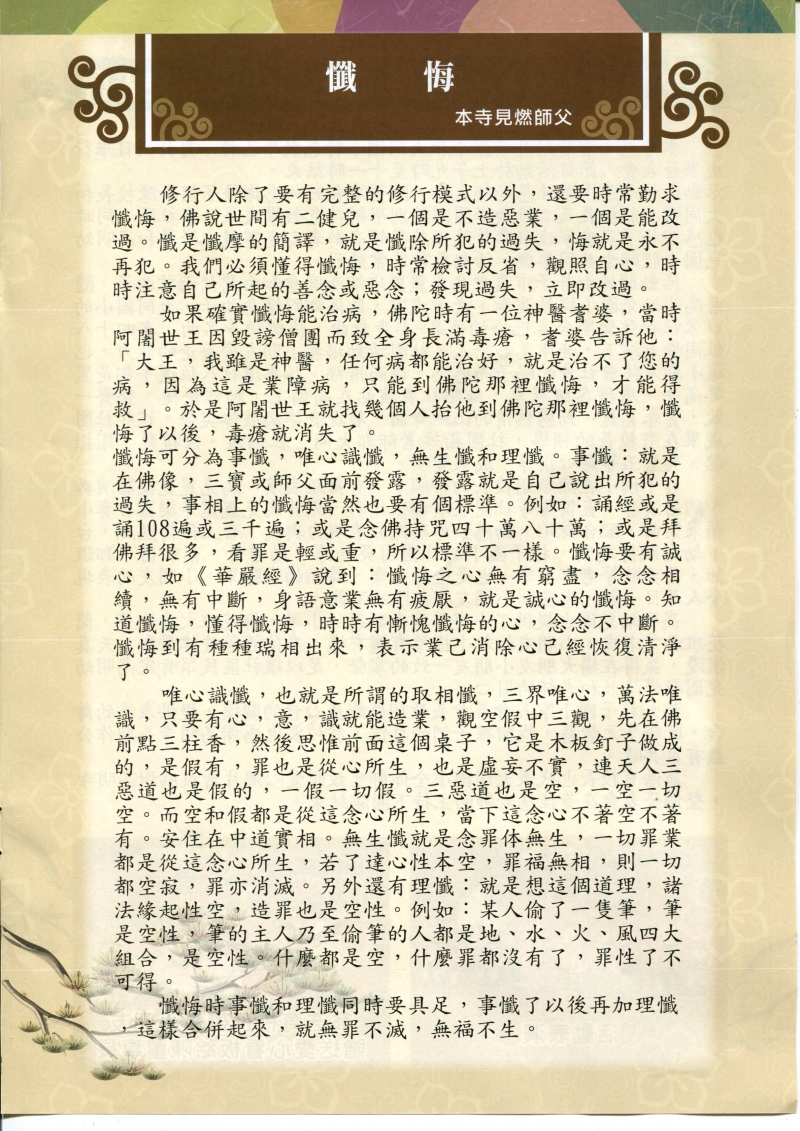 懺 悔
本寺見燃師父
修行人除了要有完整的修行模式以外，還要時常勤求
懺悔，佛說世間有二健兒，一個是不造惡業，一個是能改
過。懺是懺摩的簡譯，就是懺除所犯的過失，悔就是永不
再犯。我們必須懂得懺悔，時常檢討反省，觀照自心，時
時注意自己所起的善念或惡念；發現過失，立即改過。
如果確實懺悔能治病，佛陀時有一位神醫耆婆，當時
阿闍世王因毀謗僧團而致全身長滿毒瘡，耆婆告訴他：
「大王，我雖是神醫，任何病都能治好，就是治不了您的
病，因為這是業障病，只能到佛陀那裡懺悔，才能得
救」。於是阿闍世王就找幾個人抬他到佛陀那裡懺悔，懺
悔了以後，毒瘡就消失了。
懺悔可分為事懺，唯心識懺，無生懺和理懺。事懺：就是
在佛像，三寶或師父面前發露，發露就是自己說出所犯的
過失，事相上的懺悔當然也要有個標準。例如：誦經或是
誦108遍或三千遍；或是念佛持咒四十萬八十萬；或是拜
佛拜很多，看罪是輕或重，所以標準不一樣。懺悔要有誠
心，如《華嚴經》說到：懺悔之心無有窮盡，念念相
續，無有中斷，身語意業無有疲厭，就是誠心的懺悔。知
道懺悔，懂得懺悔，時時有慚愧懺悔的心，念念不中斷。
懺悔到有種種瑞相出來，表示業已消除心已經恢復清淨
了。
唯心識懺，也就是所謂的取相懺，三界唯心，萬法唯
識，只要有心，意，識就能造業，觀空假中三觀，先在佛
前點三柱香，然後思惟前面這個桌子，它是木板釘子做成
的，是假有，罪也是從心所生，也是虛妄不實，連天人三
惡道也是假的，一假一切假。三惡道也是空，一空一切
空。而空和假都是從這念心所生，當下這念心不著空不著
有。安住在中道實相。無生懺就是念罪体無生，一切罪業
都是從這念心所生，若了達心性本空，罪福無相，則一切
都空寂，罪亦消滅。另外還有理懺：就是想這個道理，諸
法緣起性空，造罪也是空性。例如：某人偷了一隻筆，筆
是空性，筆的主人乃至偷筆的人都是地、水、火、風四大
組合，是空性。什麼都是空，什麼罪都沒有了，罪性了不
可得。
懺悔時事懺和理懺同時要具足，事懺了以後再加理懺
，這樣合併起來，就無罪不滅，無福不生。